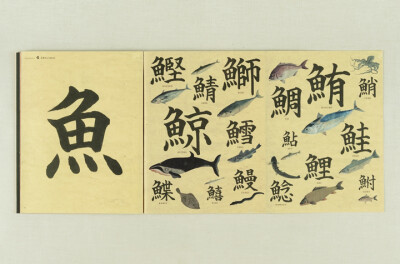 魚
鰹
鯖
鰤
鯨
鱈
鰈
鱚
鰻
鯛
鮪
鮹
鮎
鮭
鯉
鯰
鮒